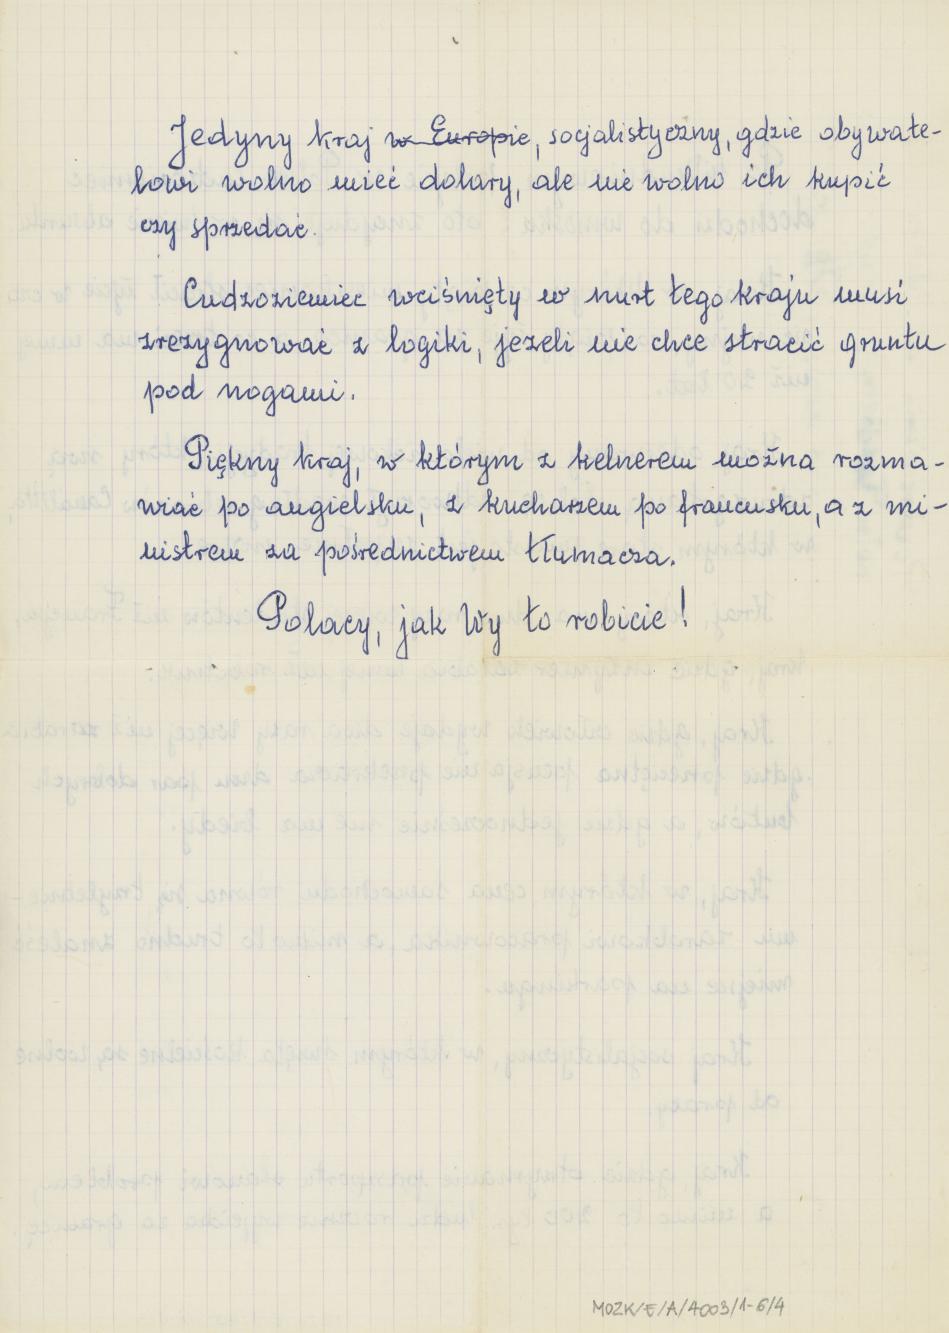 Jedyny kraj w Europie, socjalistyczny, gdzie obywate-
lowi wolno mieć dolary, ale nie wolno ich kupić
czy sprzedać.
Cudzoziemiec wciśnięty w nurt tego kraju musi
zrezygnować z logiki, jeżeli nie chce stracić gruntu
pod nogami.
Piękny kraj, w którym z kelnerem można rozma-
wiać po angielsku, z kucharzem po francusku, a z mi-
nistrem za pośrednictwem tłumacza.
Polacy, jak Wy to robicie!
MOZK/E/A/4003/1-6/4